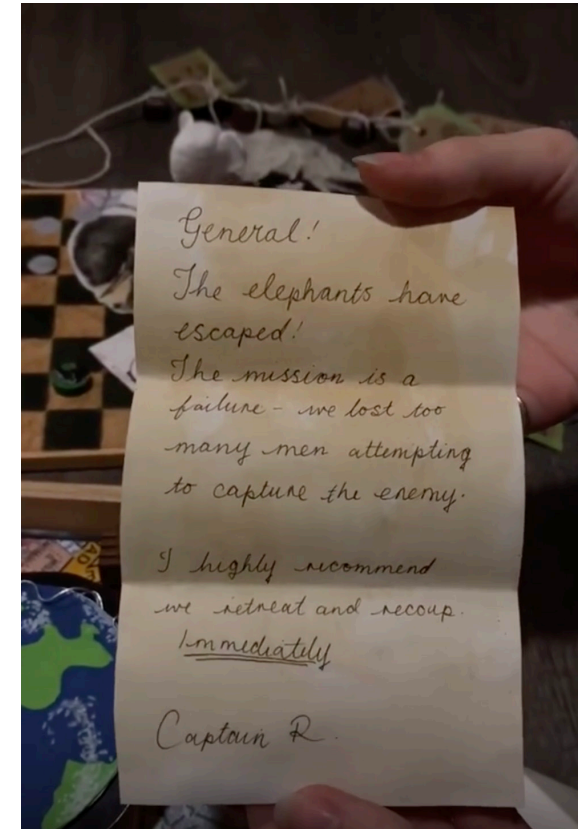 General!
The elephants have
escaped!
The mission is a
failure - we lost too
many men attempting
to capture the enemy.
I highly recommend
we retreat and recoup.
Immediately
Captain R.